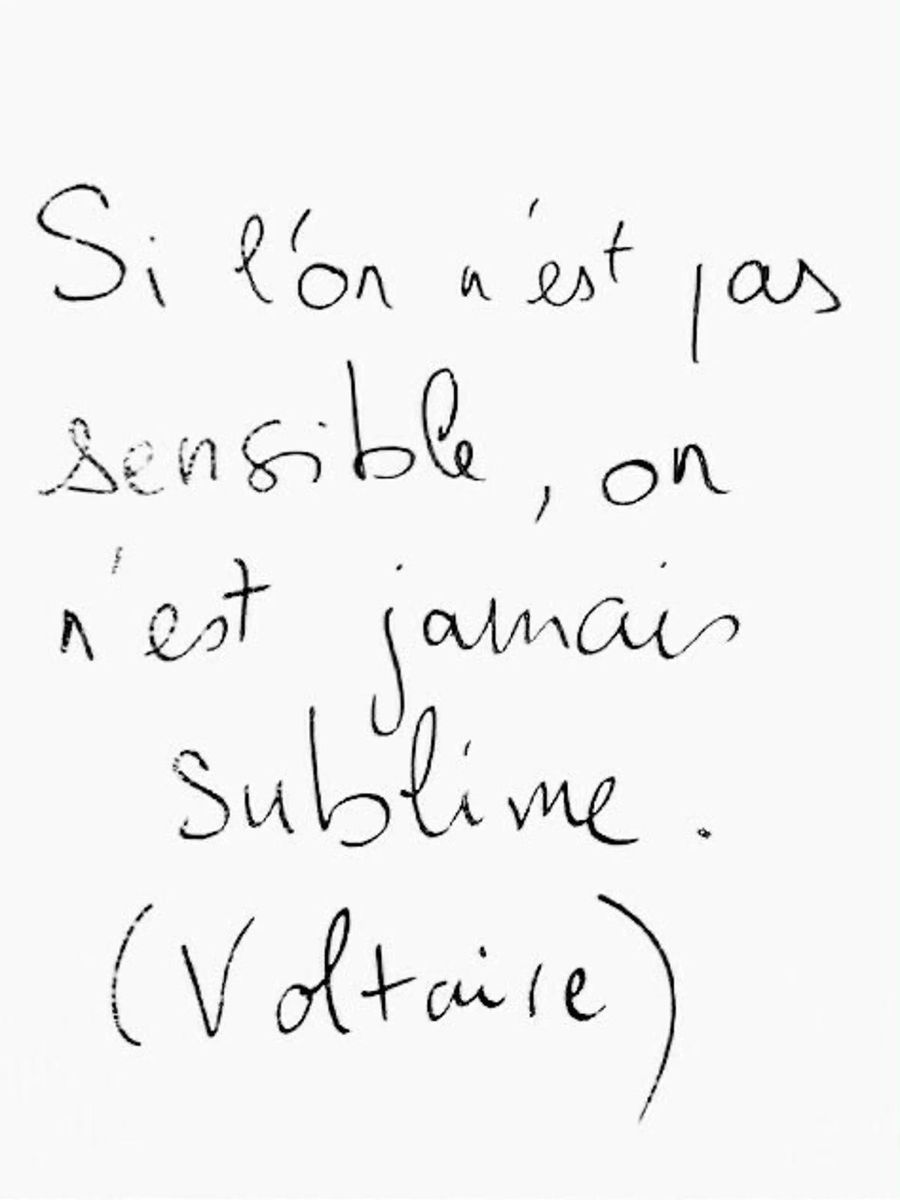 Si l'on n'est pas
sensible, on
n'est jamais
sublime.
(Voltaire)